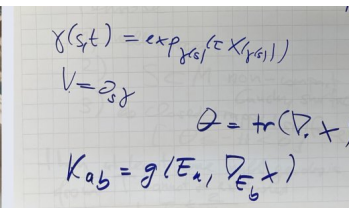 γ(s,t) = exp_{γ(s)}(τ X(γ(s)))
V = ∂_s γ
θ = tr(∇. X
K_{ab} = g(E_a, ∇_{E_b} X)